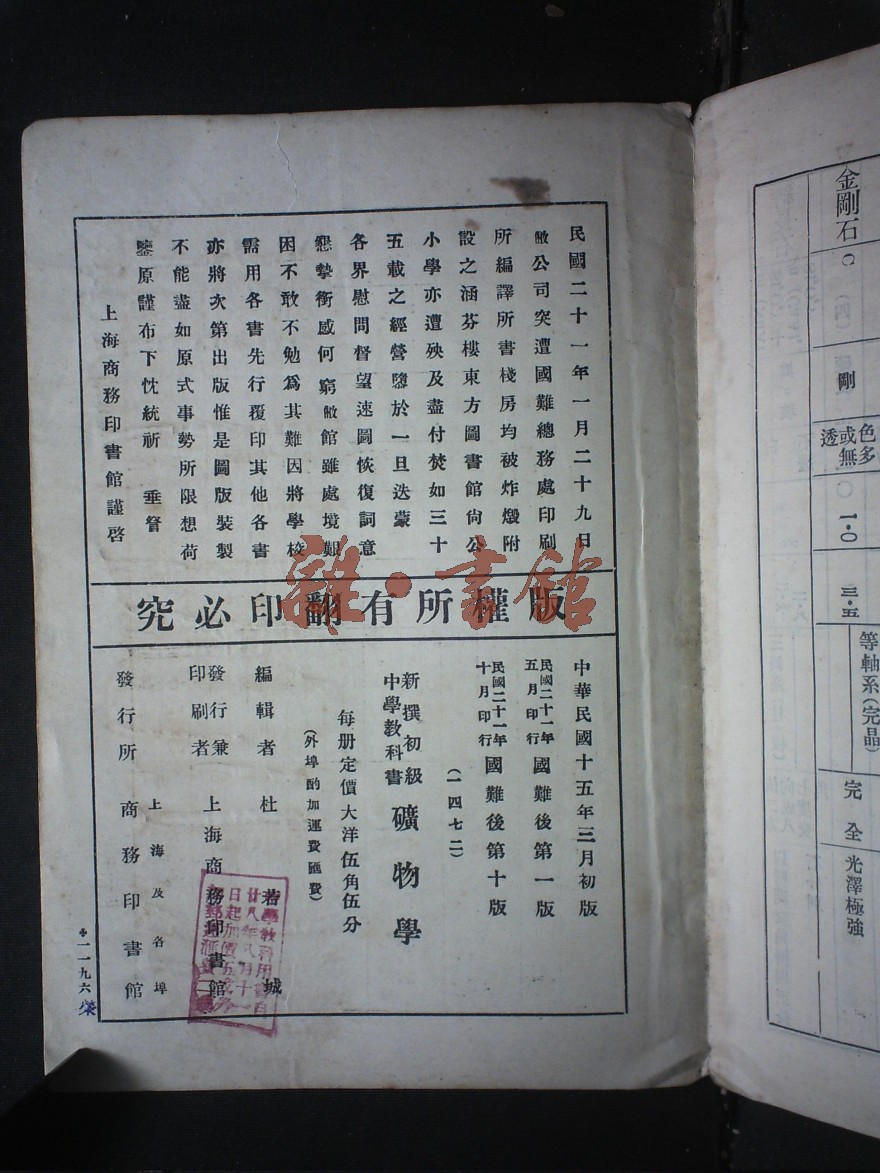 民國二十一年一月二十九日
敝公司突遭國難總務處印刷
所編譯所書棧房均被炸燬附
設之涵芬樓東方圖書館尙公
小學亦遭殃及盡付焚如三十
五載之經營隳於一旦迭蒙
各界慰問督望速圖恢復詞意
懇摯銜感何窮敝館雖處境艱
困不敢不勉爲其難因將學校
需用各書先行覆印其他各書
亦將次第出版惟是圖版裝製
不能盡如原式事勢所限想荷
鑒原謹布下忱統祈 垂詧
上海商務印書館謹啓
版權所有翻印必究
中華民國十五年三月初版
民國二十一年五月印行 國難後第一版
民國二十一年十月印行 國難後第十版
(一四七二)
新撰初級中學教科書 礦物學
每册定價大洋伍角伍分
(外埠酌加運費匯費)
編輯者 杜若城
發行兼印刷者 上海商務印書館
發行所 上海及各埠 商務印書館
一一九六
雜·書館
金剛石
C
剛
色多或無
透
一·〇
三·五
等軸系(完晶)
完全
光澤極強